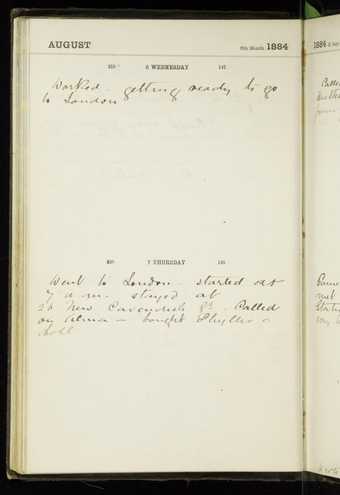 AUGUST
8th Month 1884
6 WEDNESDAY
Worked - getting ready to go
to London
7 THURSDAY
Went to London - started at
7 a.m. stayed at
New Cavendish St. Called
on Alma - bought Phyllis a
doll
1884
Called
Came
met